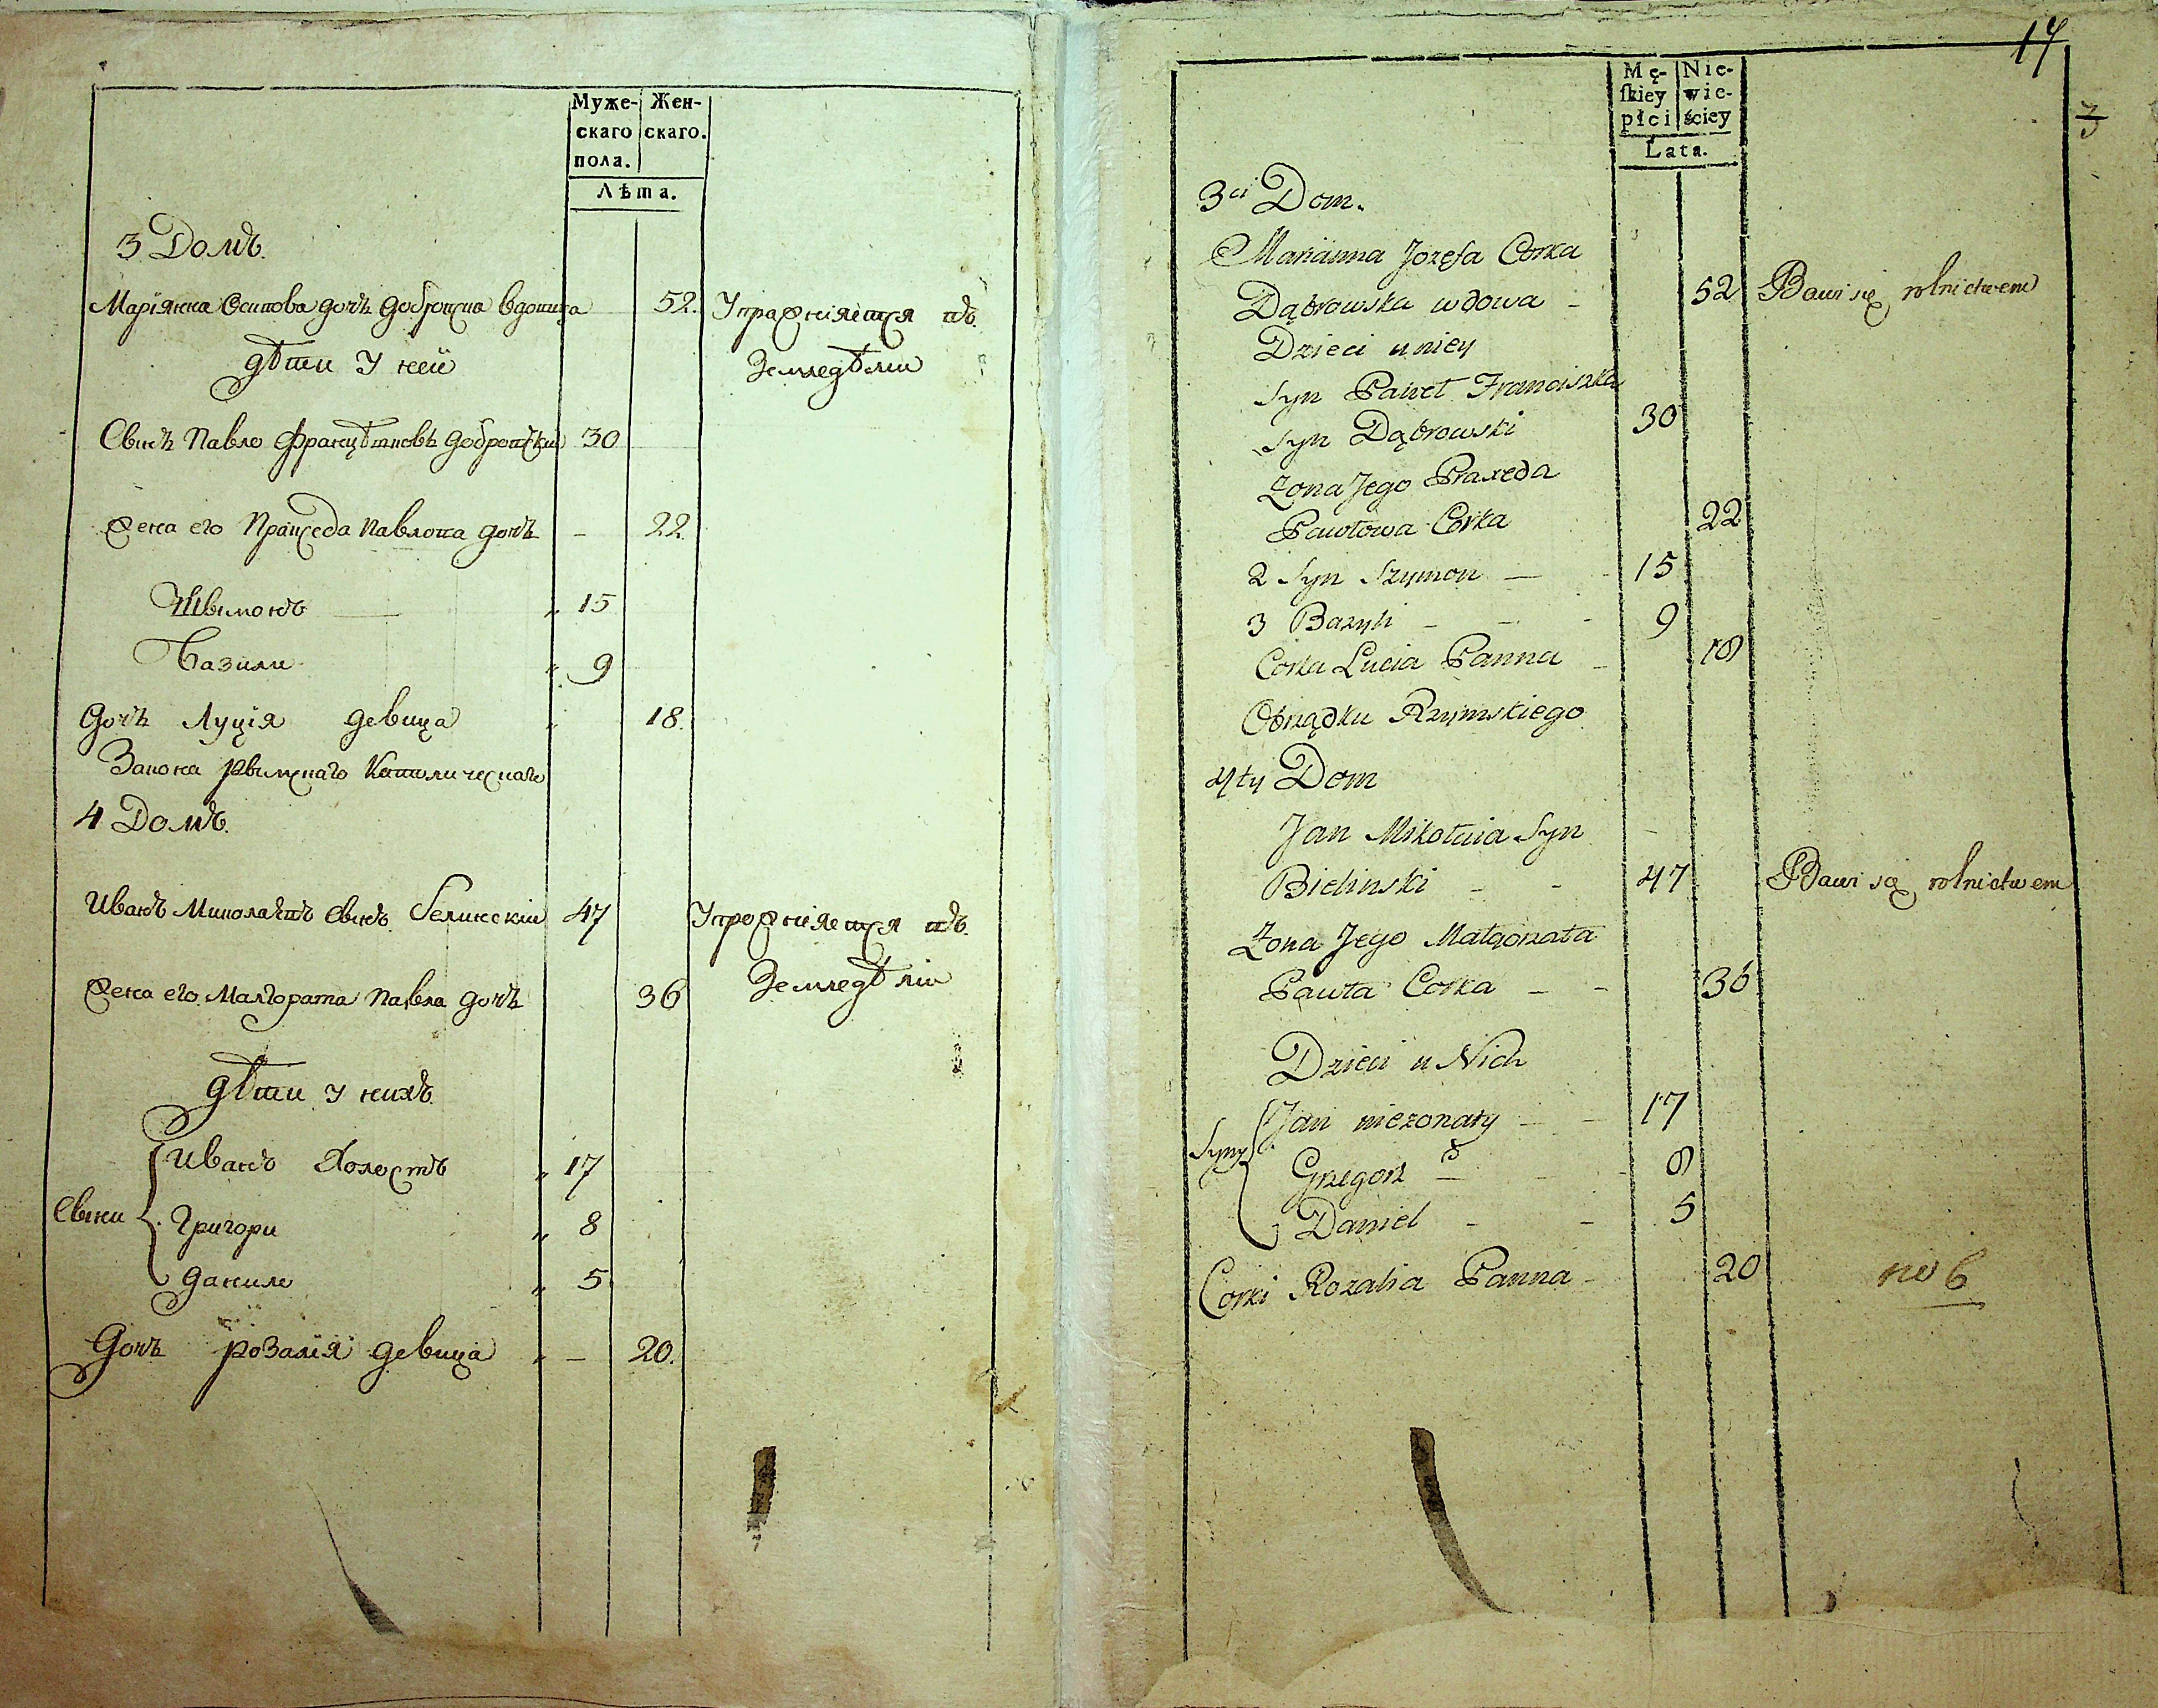 Муже- Жен-
скаго скаго.
пола.
Лѣта.
3 Домъ.
Маріянна Осипова дочъ добровска вдовица 52. Упражняется въ
дѣти у неи Земледѣліи
Сынъ Павло Францѣшковъ добровскій 30
Жена его Праѯеда Павлова дочъ - 22
Шымонъ — „ 15
Базили „ 9
Дочъ Луція девица „ 18.
Закона Рымскаго Католическаго
4 Домъ.
Иванъ Миколаевъ Сынъ белинскій 47 Упражняется въ
Жена его Малгората Павла дочъ 36 Земледѣліи
дѣти у нихъ
Иванъ Холостъ „ 17
Сыни Григори „ 8
Даниль „ 5
Дочъ розалія девица „ — 20.
17
Mę- Nie-
skiey wie-
płci ściey
Lata.
3ci Dom.
Marianna Jozefa Corka
Dąbrowska wdowa - 52 Bawi się rolnictwem
Dzieci u niey
Syn Paweł Franciszka
Syn Dąbrowski 30
Zona Jego Praxeda
Pawłowa Corka 22
2 Syn Szymon — - 15
3 Bazyli - - - 9
Corka Lucia Panna - 18
Obrządku Rzymskiego
4ty Dom
Jan Mikołaia Syn
Bielinski - - 47 Bawi się rolnictwem
Zona Jego Małgorzata
Pawła Corka - - 36
Dzieci u Nich
Jan niezonaty - - 17
Syny Grzegorz - - 8
Daniel - - 5
Corki Rozalia Panna - 20 no 6